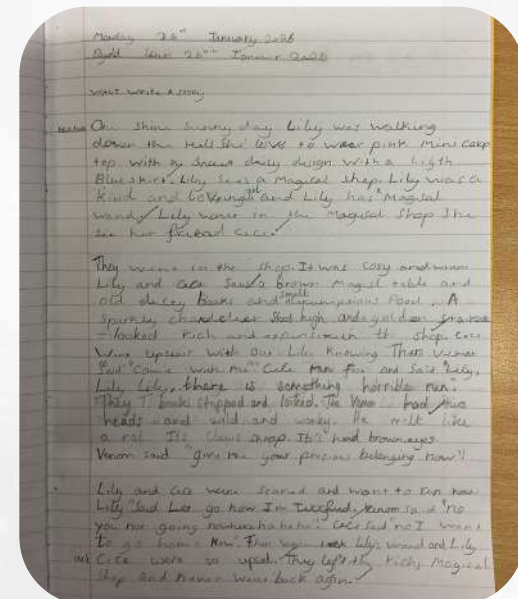 Monday 26th January 2026
Dydd Llun 26ain Ionawr 2026
WALT write a story
One shine sunny day Lily was walking
down the Hill. She love to wear pink mini crop
top with a daisy design with a ligth
Blue skirt. Lily sees a magical shop. Lily was a
kind and Loveing girl and Lily has a Magical
wand. Lily wone in the Magical Shop She
see her Cece.
They went in the shop. It was cosy and warm
Lily and Cece Saw a brown Magical table and
old books and smelt Food. A
Sparkly chandelier high and golden
looked Rich and in the shop. Cece
Went upstair with out Lily Knowing Then Venom
Said "Come with me" Cece and Said "Lily,
Lily Lily, there is something horrible run".
They stopped and looked. The Venom had two
heads and wild and wonky. He like
a rat Its Claws sharp. It had brown eyes
Venom said "give me your precious belonging now"!
Lily and Cece were scared and want to run now
Lily "Said go home Im" Venom said "no
you not going nowhere hahaha". Cece Said "no I want
to go home Now! Then Lily's wand and Lily
and Cece were so upset. They left the Rich, Magical
Shop and Never were back again.